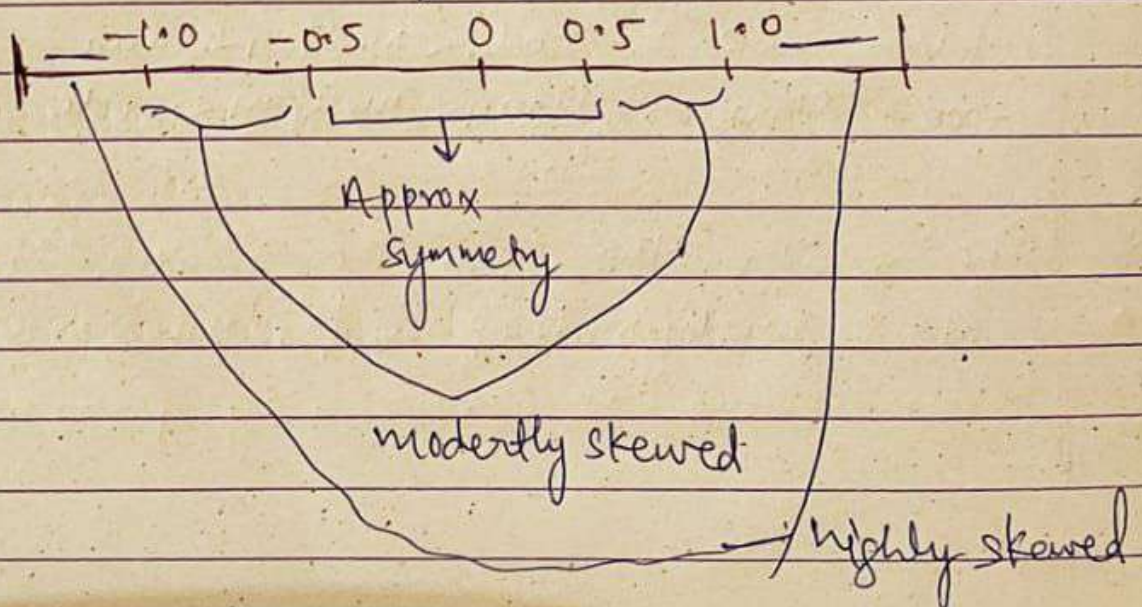 -1.0 -0.5 0 0.5 1.0
Approx
symmetry
modertly skewed
highly skewed